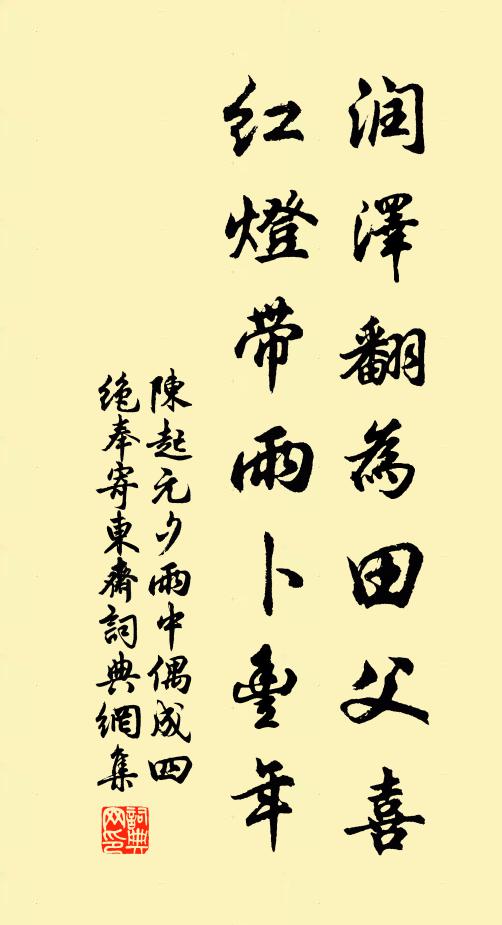 润澤翻為田父喜
红燈帶雨卜豐年
陳起元夕雨中偶成四
绝奉寄東齋詞典網集
詞典
网印